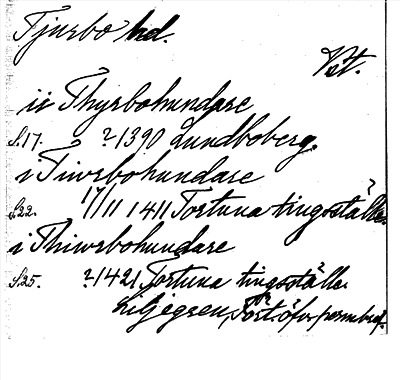 Tjurbo hd.
Vst.
ii Thyrbohundare
s.17. ? 1390 Lundboberg.
i Tiwrbohundare
s.22. 17/11 1411 Tortuna tingsställe.
i Thiwrbohundare
s.25. ? 1421 Tortuna tingsställe.
Liljegren, Fört. öfver permbref.